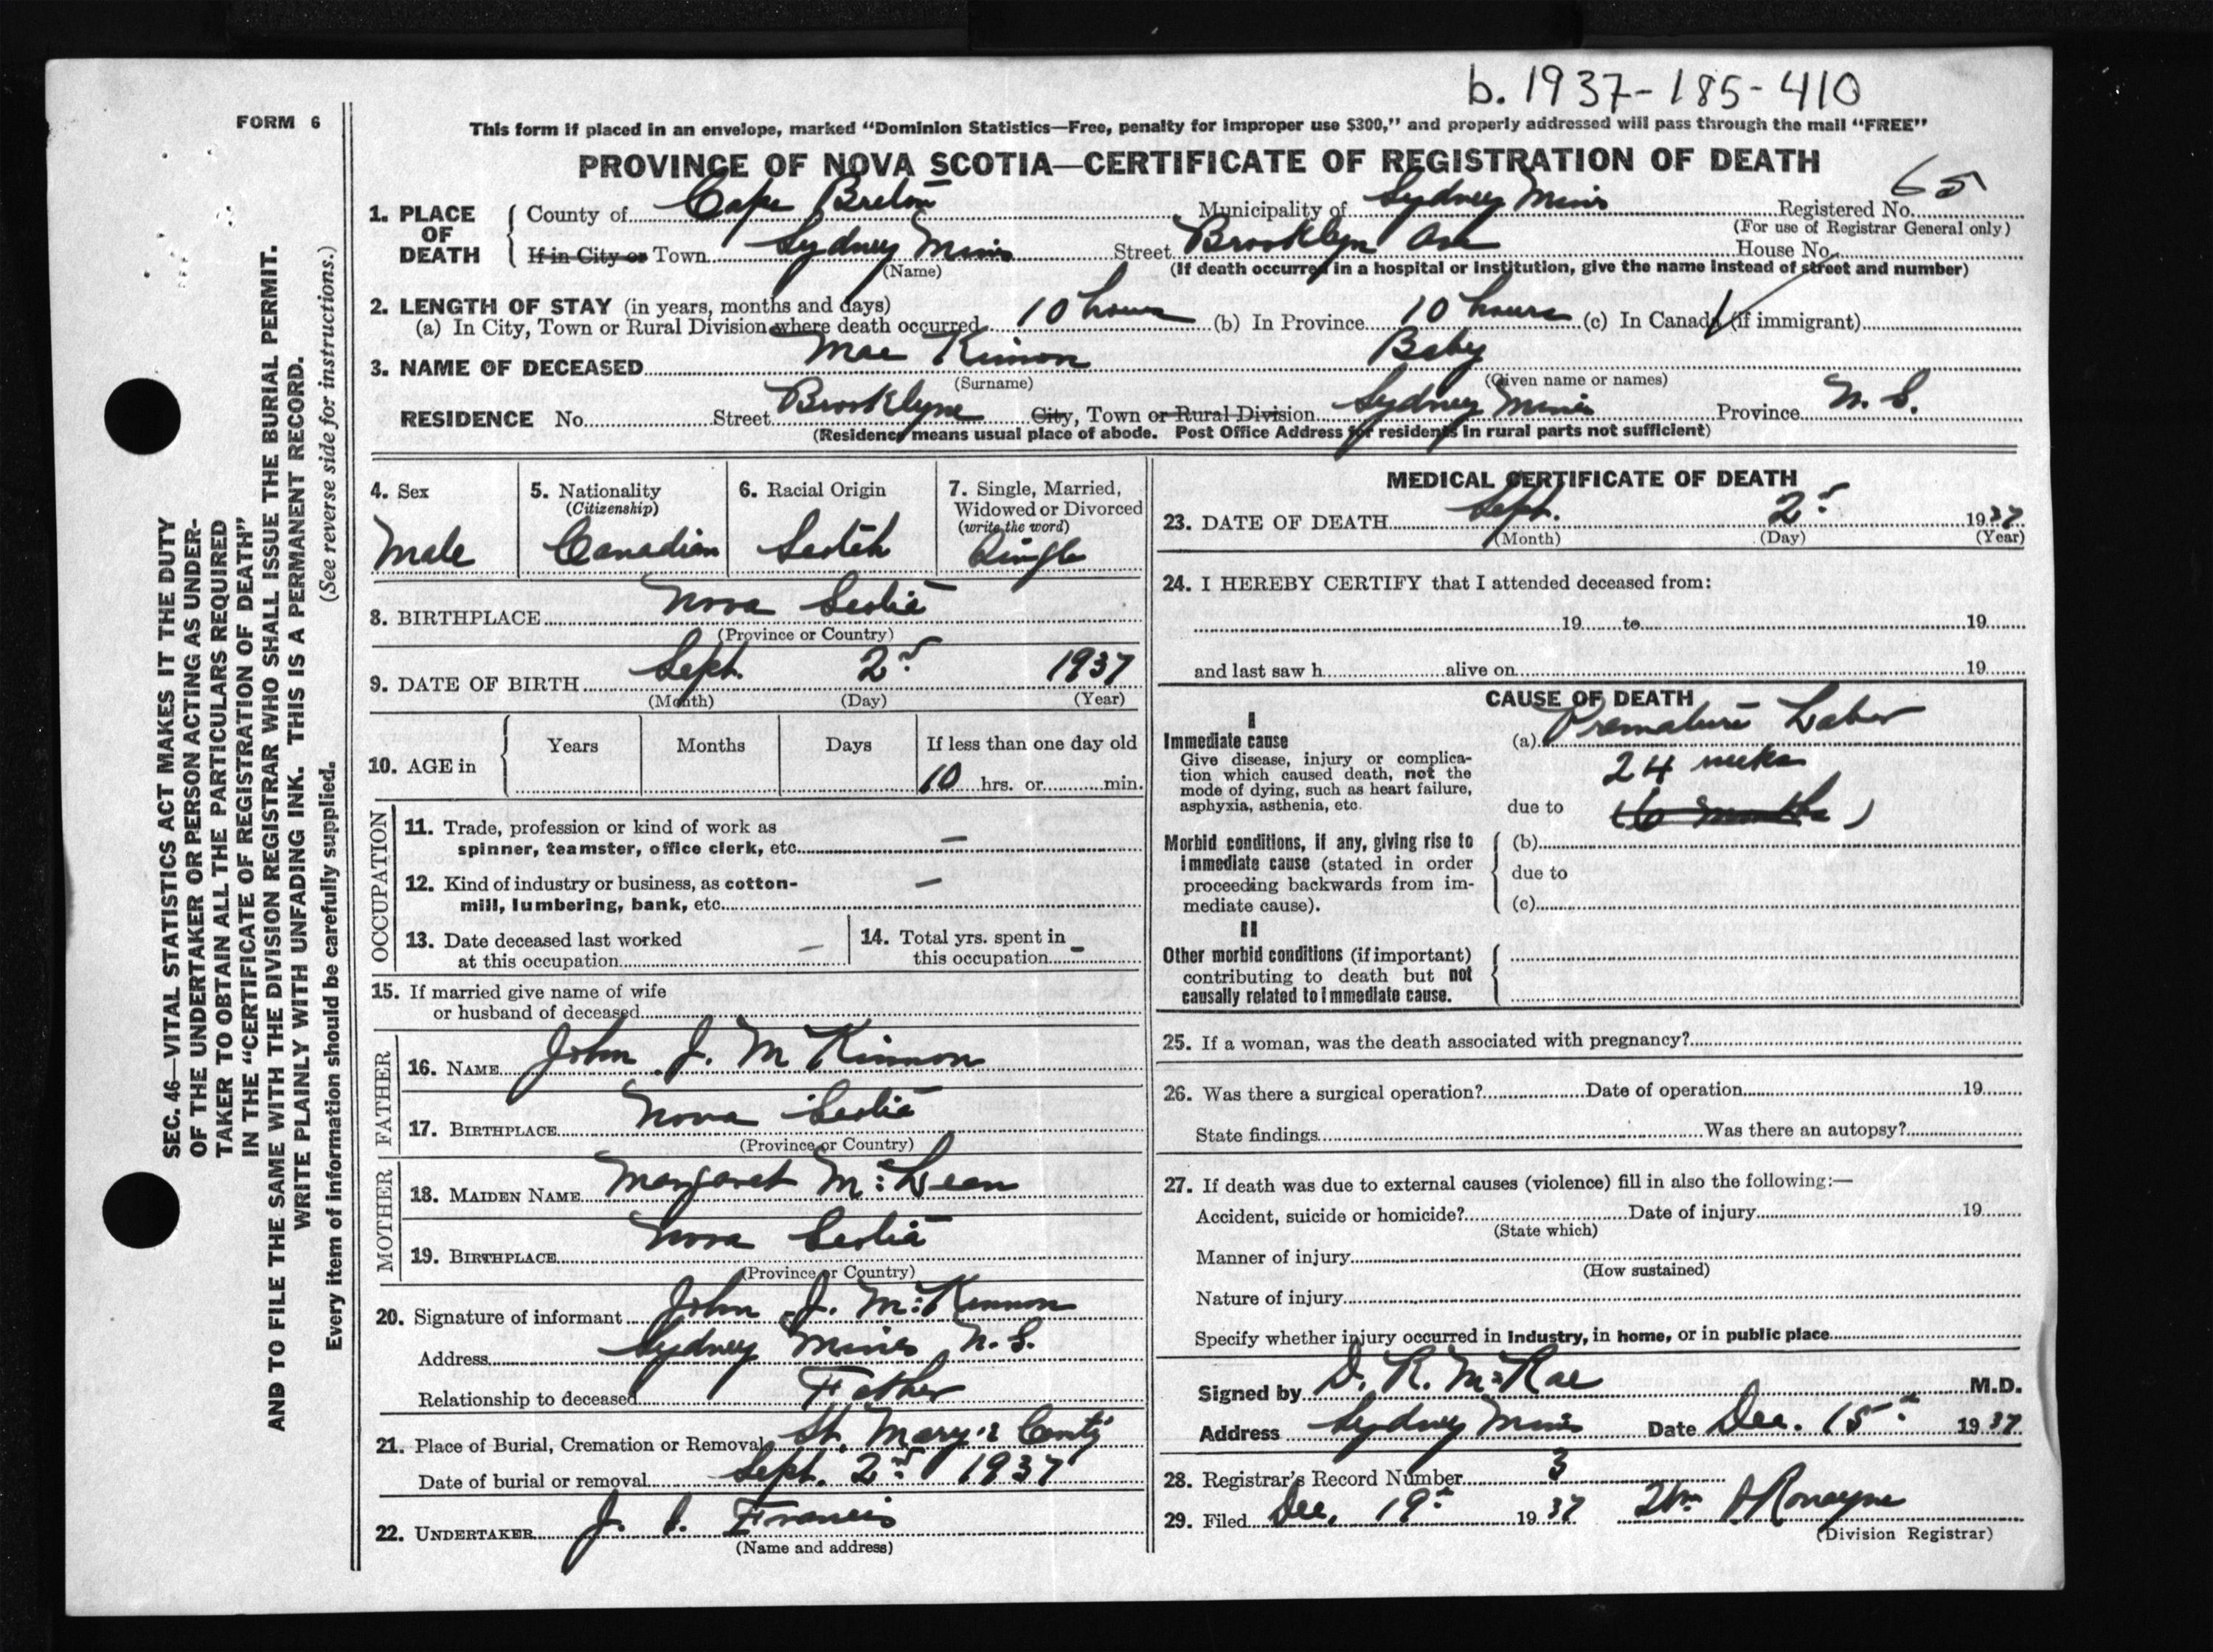 b. 1937-185-410
FORM 6
This form if placed in an envelope, marked “Dominion Statistics—Free, penalty for improper use $300,” and properly addressed will pass through the mail “FREE”
PROVINCE OF NOVA SCOTIA—CERTIFICATE OF REGISTRATION OF DEATH
65
1. PLACE OF DEATH County of Cape Breton Municipality of Sydney Mines Registered No.
(For use of Registrar General only)
If in City or Town Sydney Mines Street Brooklyn Ave House No.
(Name) (If death occurred in a hospital or Institution, give the name instead of street and number)
2. LENGTH OF STAY (in years, months and days)
(a) In City, Town or Rural Division where death occurred 10 hours (b) In Province 10 hours (c) In Canada (if immigrant)
3. NAME OF DECEASED Mac Kinnon Baby
(Surname) (Given name or names)
RESIDENCE No. Street Brooklyne City, Town or Rural Division Sydney Mines Province N. S.
(Residence means usual place of abode. Post Office Address for residents in rural parts not sufficient)
4. Sex Male
5. Nationality (Citizenship) Canadian
6. Racial Origin Scotch
7. Single, Married, Widowed or Divorced (write the word) Single
8. BIRTHPLACE Nova Scotia
(Province or Country)
9. DATE OF BIRTH Sept. 2nd 1937
(Month) (Day) (Year)
10. AGE in Years Months Days If less than one day old
10 hrs. or min.
OCCUPATION
11. Trade, profession or kind of work as
spinner, teamster, office clerk, etc. —
12. Kind of industry or business, as cotton-
mill, lumbering, bank, etc. —
13. Date deceased last worked
at this occupation —
14. Total yrs. spent in
this occupation —
15. If married give name of wife
or husband of deceased
FATHER
16. NAME John J. McKinnon
17. BIRTHPLACE Nova Scotia
(Province or Country)
MOTHER
18. MAIDEN NAME Margaret McLean
19. BIRTHPLACE Nova Scotia
(Province or Country)
20. Signature of informant John J. McKinnon
Address Sydney Mines N. S.
Relationship to deceased Father
21. Place of Burial, Cremation or Removal St. Mary's
Date of burial or removal Sept. 2nd 1937
22. UNDERTAKER J. Francis
(Name and address)
MEDICAL CERTIFICATE OF DEATH
23. DATE OF DEATH Sept. 2nd 1937
(Month) (Day) (Year)
24. I HEREBY CERTIFY that I attended deceased from:
19 to 19
and last saw h alive on 19
CAUSE OF DEATH
I
Immediate cause
Give disease, injury or complica-
tion which caused death, not the
mode of dying, such as heart failure,
asphyxia, asthenia, etc.
(a) Premature Labor
24 weeks
due to (6 months)
Morbid conditions, if any, giving rise to
immediate cause (stated in order
proceeding backwards from im-
mediate cause).
(b)
due to
(c)
II
Other morbid conditions (if important)
contributing to death but not
causally related to immediate cause.
25. If a woman, was the death associated with pregnancy?
26. Was there a surgical operation? Date of operation 19
State findings Was there an autopsy?
27. If death was due to external causes (violence) fill in also the following:—
Accident, suicide or homicide? Date of injury 19
(State which)
Manner of injury
(How sustained)
Nature of injury
Specify whether injury occurred in Industry, in home, or in public place
Signed by D. R. McRae M.D.
Address Sydney Mines Date Dec. 15th 1937
28. Registrar's Record Number 3
29. Filed Dec. 19th 1937 Wm Ronayne
(Division Registrar)
SEC. 46—VITAL STATISTICS ACT MAKES IT THE DUTY
OF THE UNDERTAKER OR PERSON ACTING AS UNDER-
TAKER TO OBTAIN ALL THE PARTICULARS REQUIRED
IN THE “CERTIFICATE OF REGISTRATION OF DEATH”
AND TO FILE THE SAME WITH THE DIVISION REGISTRAR WHO SHALL ISSUE THE BURIAL PERMIT.
WRITE PLAINLY WITH UNFADING INK. THIS IS A PERMANENT RECORD.
Every item of information should be carefully supplied. (See reverse side for instructions.)